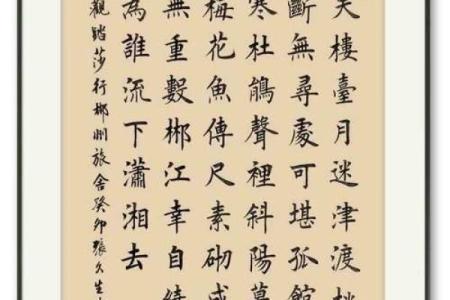 失樓臺月迷津渡桃
斷無尋處可堪孤館
寒杜鵑聲裡斜陽暮
梅花魚傳尺素砌成
無重數郴江幸自繞
為誰流下瀟湘去
觀踏莎行郴州旅舍癸卯張久生